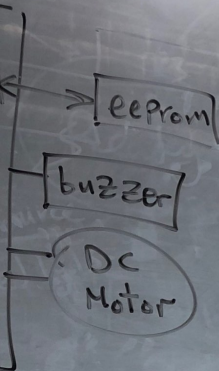 eeprom
buzzer
DC
Motor